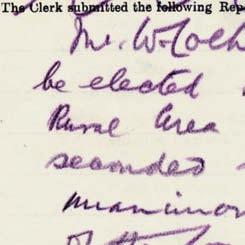 The Clerk submitted the following Rep
Mr. W. Coch
be elected
Rural Area
seconded
unanimou